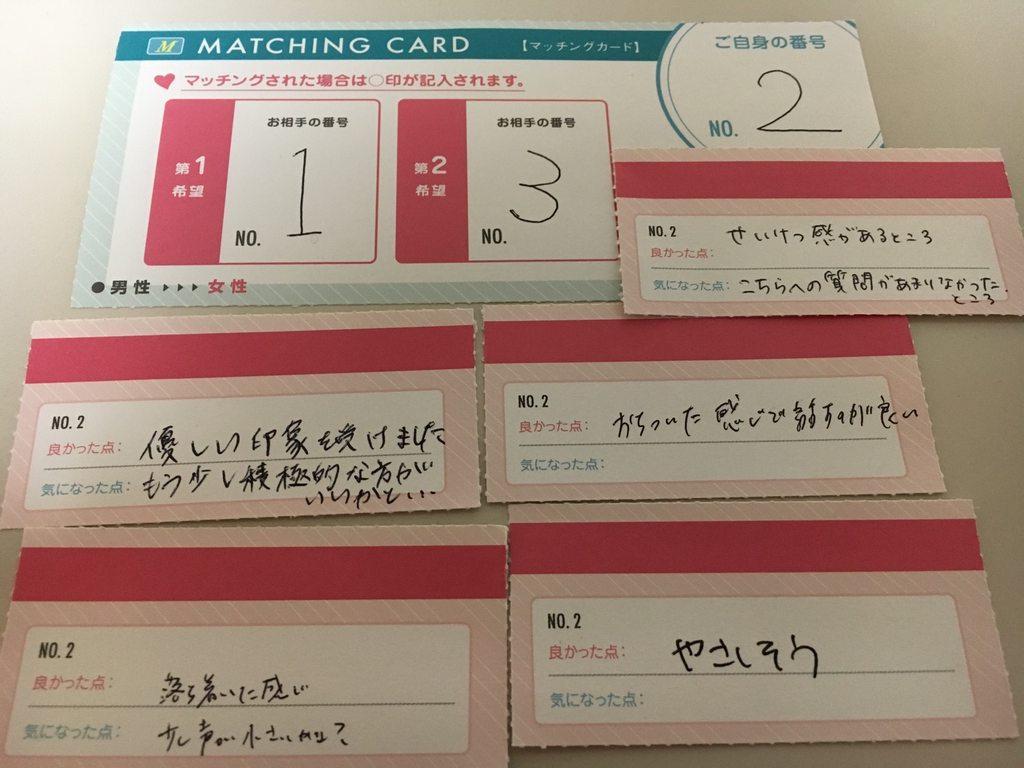 M MATCHING CARD 【マッチングカード】
ご自身の番号
NO. 2
マッチングされた場合は○印が記入されます。
第1希望
お相手の番号
NO. 1
第2希望
お相手の番号
NO. 3
●男性 ▸▸▸ 女性
NO.2
良かった点: せいけつ感があるところ
気になった点: こちらへの質問があまりなかった
ところ
NO.2
良かった点: 優しい印象を受けました
気になった点: もう少し積極的な方が
いいかと...
NO.2
良かった点: おちついた感じで話すのが良い
気になった点:
NO.2
良かった点: 落ち着いた感じ
気になった点: 少し声が小さいかな?
NO.2
良かった点: やさしそう
気になった点: